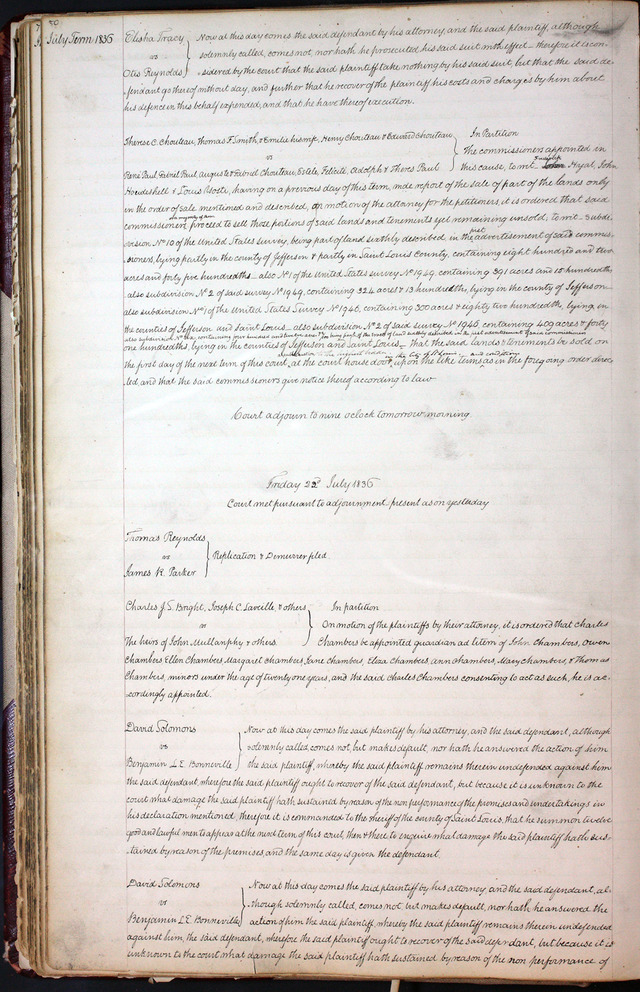 50
July Term 1836
Elisha Tracy
vs
Otis Reynolds
Now at this day comes the said defendant by his attorney, and the said plaintiff, although
solemnly called, comes not, nor hath he prosecuted his said suit with effect therefore it is con-
sidered by the court that the said plaintiff take nothing by his said suit, but that the said de-
fendant go thereof without day, and further that he recover of the plaintiff his costs and charges by him about
his defence in this behalf expended, and that he have thereof execution.
Therese C. Chouteau, Thomas F. Smith, & Emilie his wife, Henry Chouteau & Edward Chouteau
vs
René Paul, Gabriel Paul, Auguste & Gabriel Chouteau, Estele, Felicité, Adolph & Theres Paul
In Partition
The commissioners appointed in
this cause, to wit John
Hyat, John
having on a previous day of this term, made report of the sale of part of the lands only
in the order of sale mentioned and described, on motion of the attorney for the petitioners, it is ordered that said
commissioners
or a majority of them
proceed to sell those portions of said lands and tenements yet remaining unsold, to wit - Subdi-
vision No 10 of the United States survey, being part of land sixthly described in the
first
advertisement of said commis-
sioners, lying partly in the county of Jefferson & partly in Saint Louis County, containing eight hundred and two
acres and forty five hundredths - also No 1 of the United States survey No 1949, containing 391 acres and 15 hundredths
also subdivision No 2 of said survey No 1949, containing 324 acres & 13 hundredths, lying in the county of Jefferson
also subdivision No 1 of the United States Survey No 1946, containing 300 acres & eighty two hundredths, lying in
the counties of Jefferson and Saint Louis - also subdivision No 2 of said survey No 1946, containing 409 acres & forty
one hundredths, lying in the counties of Jefferson and Saint Louis - that the said lands & tenements be sold on
the first day of the next term of this court, at the court house door
in the City of St Louis
upon the like terms as in the foregoing order direc-
ted, and that the said commissioners give notice thereof according to law
Court adjourn to nine oclock tomorrow morning.
Friday 22d July 1836
Court met pursuant to adjournment present as on yesterday
Thomas Reynolds
vs
James R. Parker
Replication & Demurrer filed
Charles J. S. Bright, Joseph C. Laville, & others
vs
The heirs of John Mullanphy & others
In partition
On motion of the plaintiffs by their attorney, it is ordered that Charles
Chambers be appointed guardian ad litem of John Chambers, Owen
Chambers Ellen Chambers, Margaret Chambers, Jane Chambers, Eliza Chambers, Ann Chambers, Mary Chambers, & Thomas
Chambers, minors under the age of twenty one years, and the said Charles Chambers consenting to act as such, he is ac-
cordingly appointed.
David Solomons
vs
Benjamin L.E. Bonneville
Now at this day comes the said plaintiff by his attorney, and the said defendant, although
solemnly called, comes not, but makes default, nor hath he answered the action of him
the said plaintiff, whereby the said plaintiff remains therein undefended against him
the said defendant, wherefore the said plaintiff ought to recover of the said defendant, but because it is unknown to the
court what damage the said plaintiff hath sustained by reason of the non performance of the promises and undertakings in
his declaration mentioned, therefore it is commanded to the sheriff of the county of Saint Louis, that he summon twelve
good and lawful men to appear at the next term of this court, then & there to enquire what damage the said plaintiff hath sus-
tained by reason of the premises, and the same day is given the defendant.
David Solomons
vs
Benjamin L.E. Bonneville
Now at this day comes the said plaintiff by his attorney, and the said defendant, al-
though solemnly called, comes not, but makes default, nor hath he answered the
action of him the said plaintiff, whereby the said plaintiff remains therein undefended
against him, the said defendant, wherefore the said plaintiff ought to recover of the said defendant, but because it is
unknown to the court what damage the said plaintiff hath sustained by reason of the non performance of